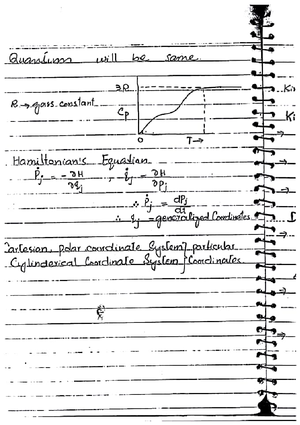 Quantum will be same.
3R
R → gass constant
Cp
0
T→
Hamiltonian's Equation
Ṗj = -∂H/∂qj , q̇j = ∂H/∂Pj
∴ Ṗj = dPj/dt
∴ qj = generalized Coordinates.
Cartesian, polar coordinate System} particular
Cylinderical Coordinate System} Coordinates.